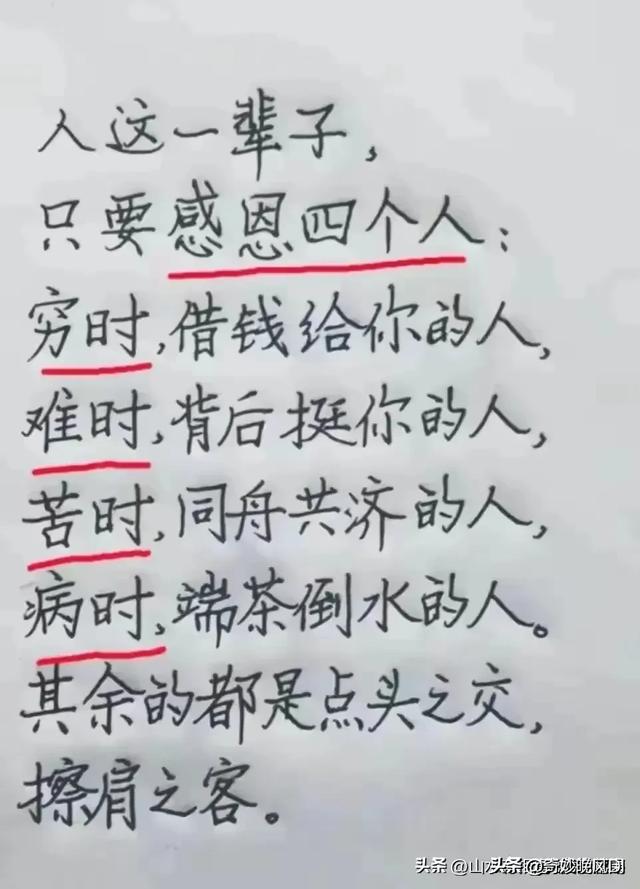 人这一辈子，
只要感恩四个人：
穷时，借钱给你的人，
难时，背后挺你的人，
苦时，同舟共济的人，
病时，端茶倒水的人。
其余的都是点头之交，
擦肩之客。
头条 @山水
头条 @奇妙晚风